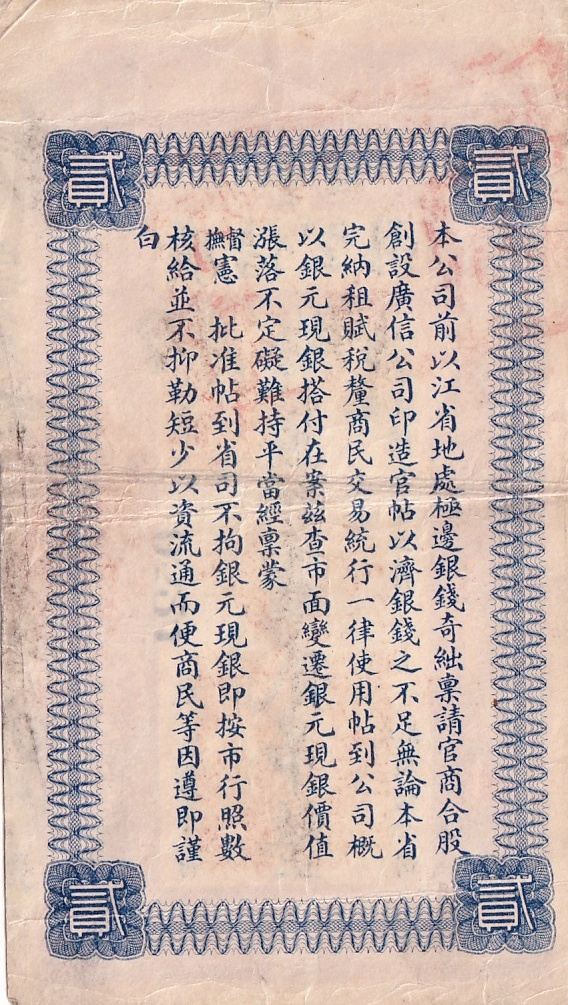 貳 貳
本公司前以江省地處極邊銀錢奇絀稟請官商合股
創設廣信公司印造官帖以濟銀錢之不足無論本省
完納租賦稅釐商民交易統行一律使用帖到公司概
以銀元現銀搭付在案茲查市面變遷銀元現銀價值
漲落不定礙難持平當經稟蒙
督撫憲 批准帖到省司不拘銀元現銀即按市行照數
核給並不抑勒短少以資流通而便商民等因遵即謹
白
貳 貳